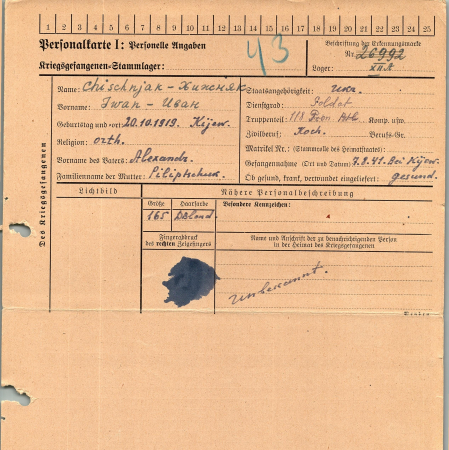 1 2 3 4 5 6 7 8 9 10 11 12 13 14 15 16 17 18 19 20 21 22 23 24 25
Personalkarte I: Personelle Angaben
Kriegsgefangenen-Stammlager:
43
Beschriftung der Erkennungsmarke
Nr. 26992
Lager: XII A
Des Kriegsgefangenen
Name: Chischnjak -
Vorname: Iwan - Иван
Geburtstag und -ort: 20.10.1919. Kijew.
Religion: orth.
Vorname des Vaters: Alexandr.
Familienname der Mutter: Piliptschuk.
Staatsangehörigkeit: ukr.
Dienstgrad: Soldat
Truppenteil: 118 Komp. usw.
Zivilberuf: Koch. Berufs-Gr.
Matrikel Nr.: (Stammrolle des Heimatstaates):
Gefangennahme (Ort und Datum) 7.8.41. Bei Kijew.
Ob gesund, krank, verwundet eingeliefert: gesund.
Lichtbild
Nähere Personalbeschreibung
Größe
165
Haarfarbe
Blond
Besondere Kennzeichen:
Fingerabdruck
des rechten Zeigefingers
Name und Anschrift der zu benachrichtigenden Person
in der Heimat des Kriegsgefangenen
unbekannt.